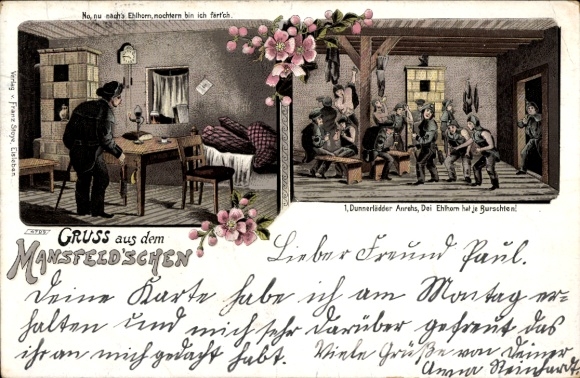 No, nu näch's Ehlhorn, nochtern bin ich färt'ch.
Verlag v. Franz Stoye, Eisleben.
1, Dunnerlädder Anrehs, Dei Ehlhorn hat je Burschten!
GRUSS aus dem
MANSFELD'SCHEN
Lieber Freund Paul.
Deine Karte habe ich am Montag er-
halten und mich sehr darüber gefreut das
ihr an mich gedacht habt. Viele Grüße von Deiner
Anna Reinhardt.